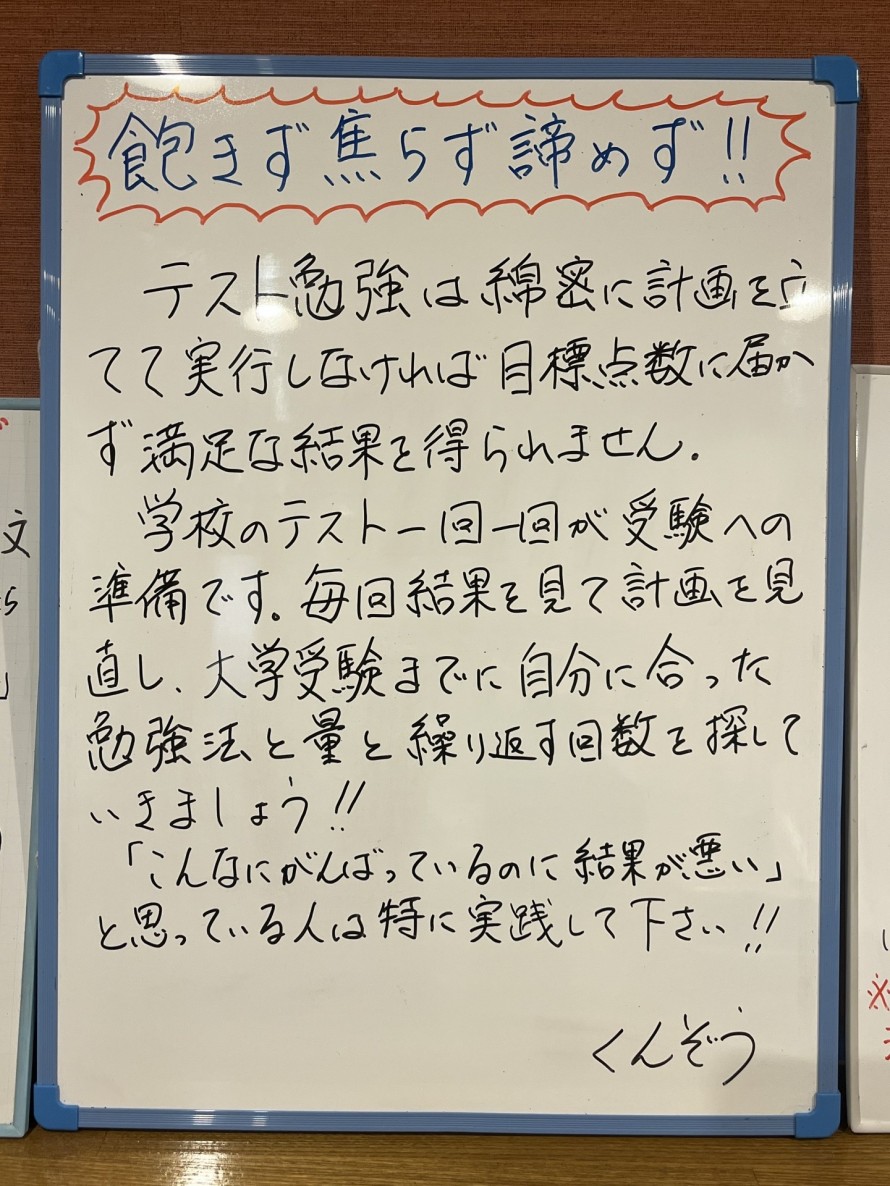 飽きず焦らず諦めず!!
テスト勉強は綿密に計画を立
てて実行しなければ目標点数に届か
ず満足な結果を得られません.
学校のテスト一回一回が受験への
準備です。毎回結果を見て計画を見
直し、大学受験までに自分に合った
勉強法と量と繰り返す回数を探して
いきましょう!!
「こんなにがんばっているのに結果が悪い」
と思っている人は特に実践して下さい!!
くんぞう
文